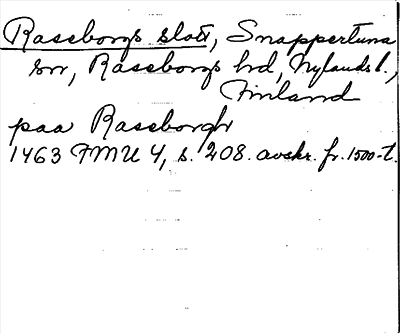 Raseborgs slott, Snappertuna
sn, Raseborgs hd, Nylands l.,
Finland
paa Raseborgh
1463 FMU 4, s. 208. avskr. fr. 1500-t.